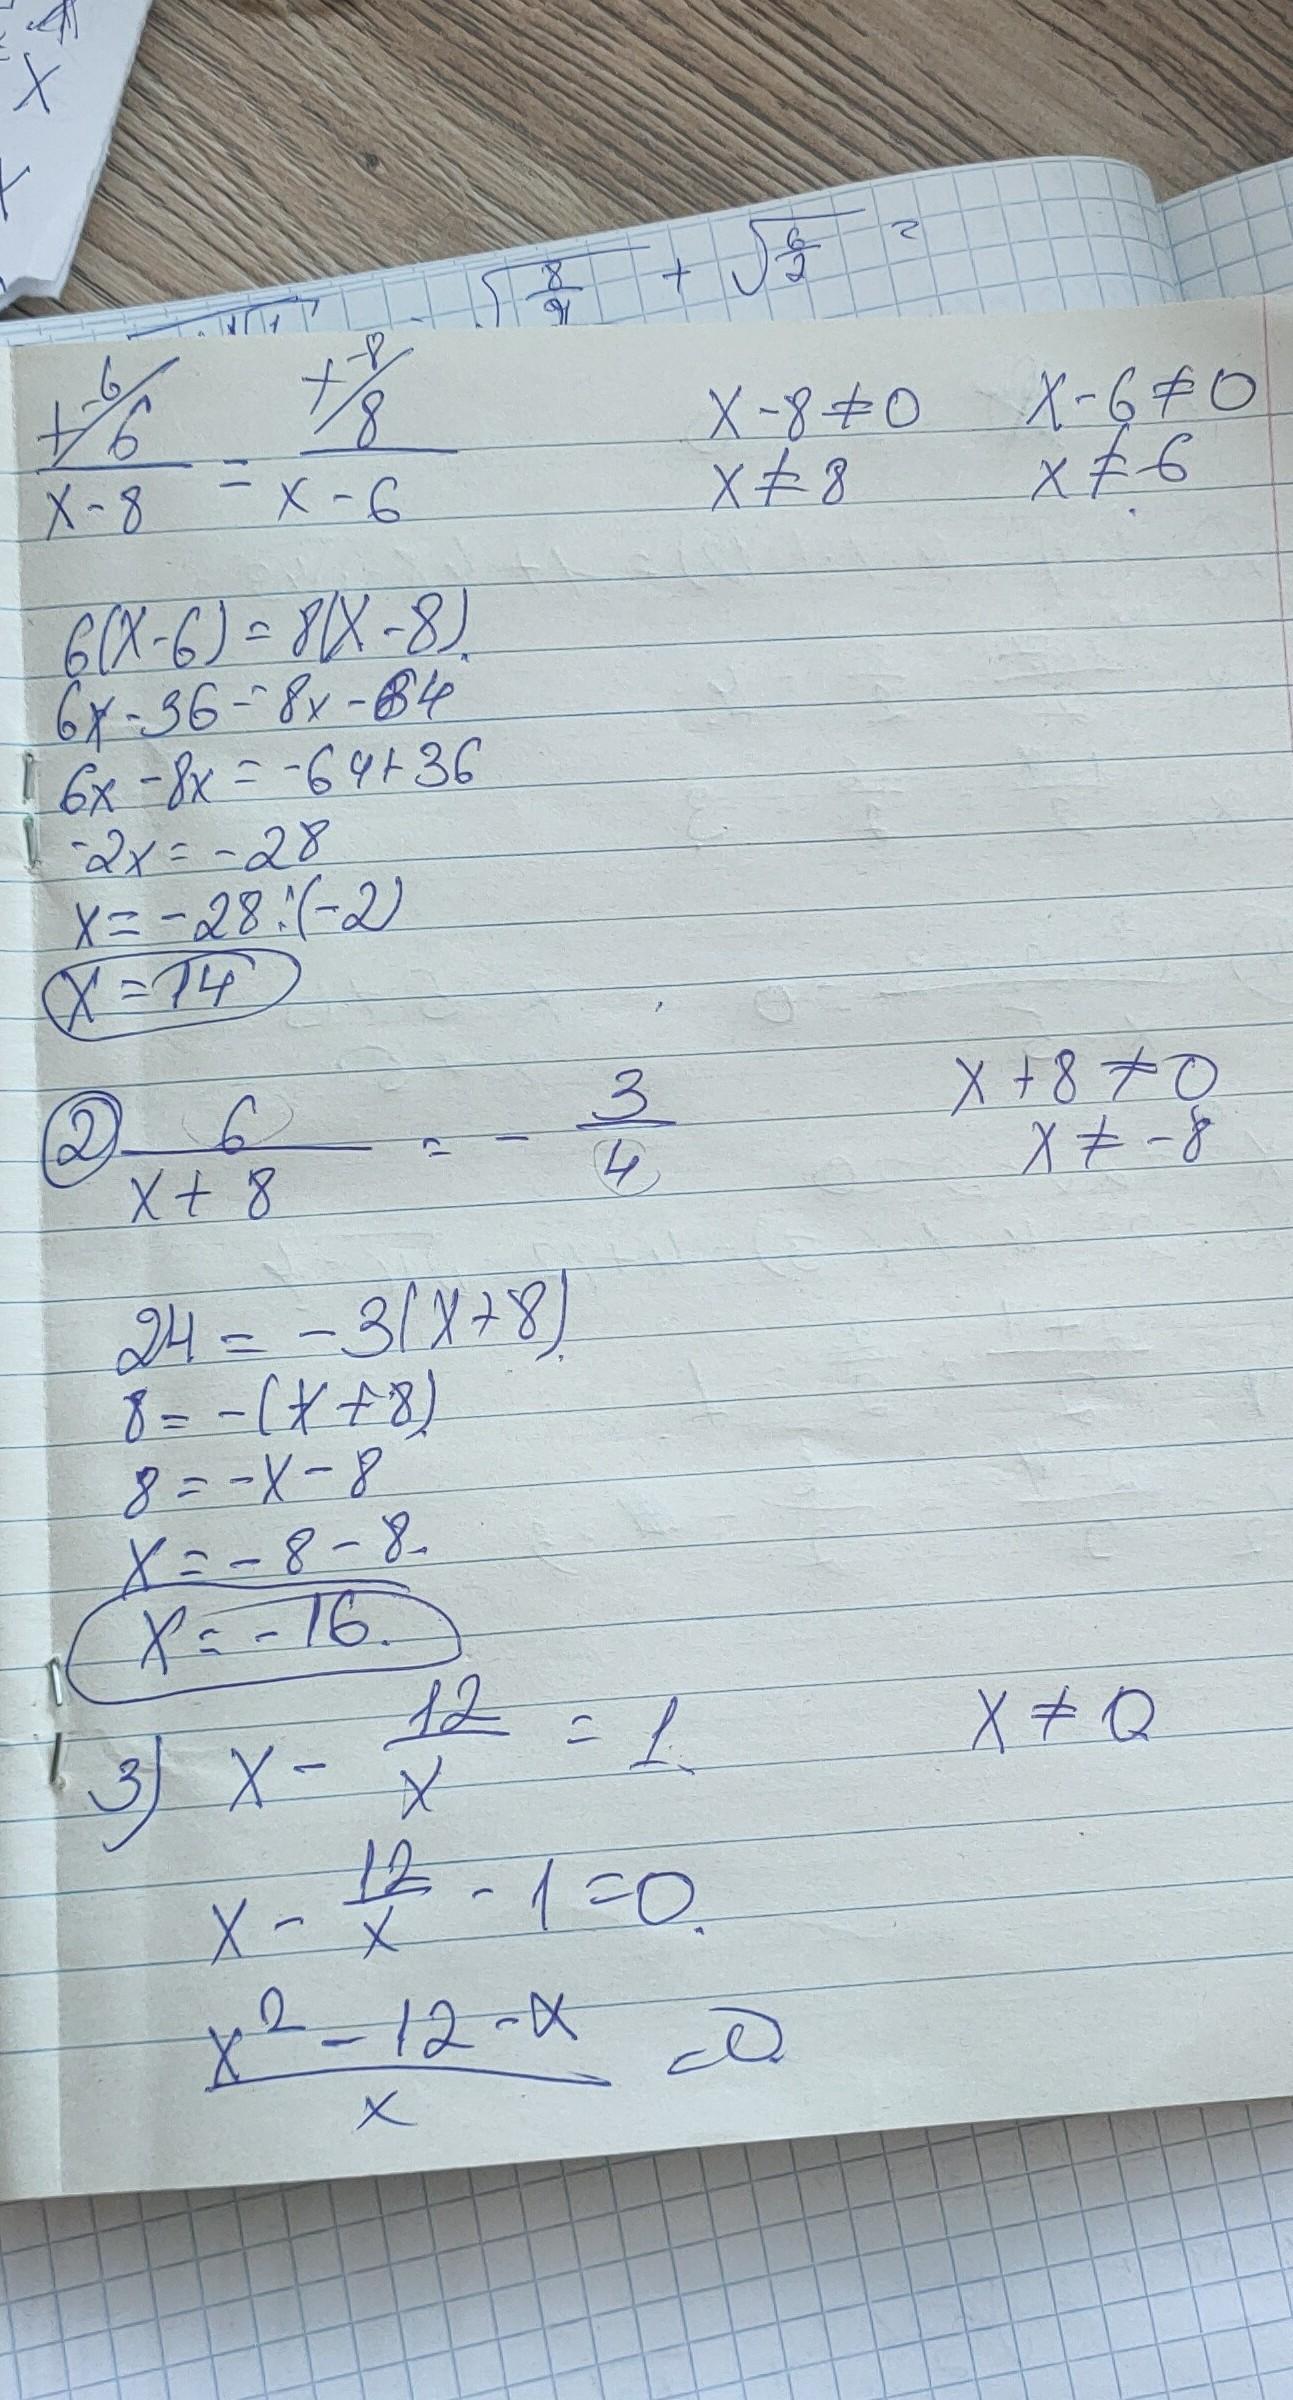 x
√(8/9) + √(6/2) =
6/(x-8) = 8/(x-6)
x-8≠0 x-6≠0
x≠8 x≠6
6(x-6)=8(x-8)
6x-36=8x-64
6x-8x=-64+36
-2x=-28
x=-28:(-2)
x=14
2) 6/(x+8) = -3/4
x+8≠0
x≠-8
24=-3(x+8)
8=-(x+8)
8=-x-8
x=-8-8
x=-16.
3) x-12/x=1
x≠0
x-12/x-1=0.
(x²-12-x)/x=0